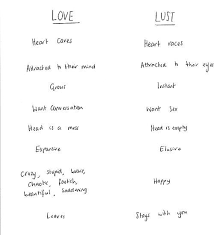 LOVE LUST
Heart Cares Heart races
Attracted to their mind Attracted to their eyes
Grows Instant
Want Conversation Want Sex
Head is a mess Head is empty
Expansive Elusive
Crazy, stupid, weird,
chaotic, foolish, Happy
beautiful, saddening
Leaves Stays with you